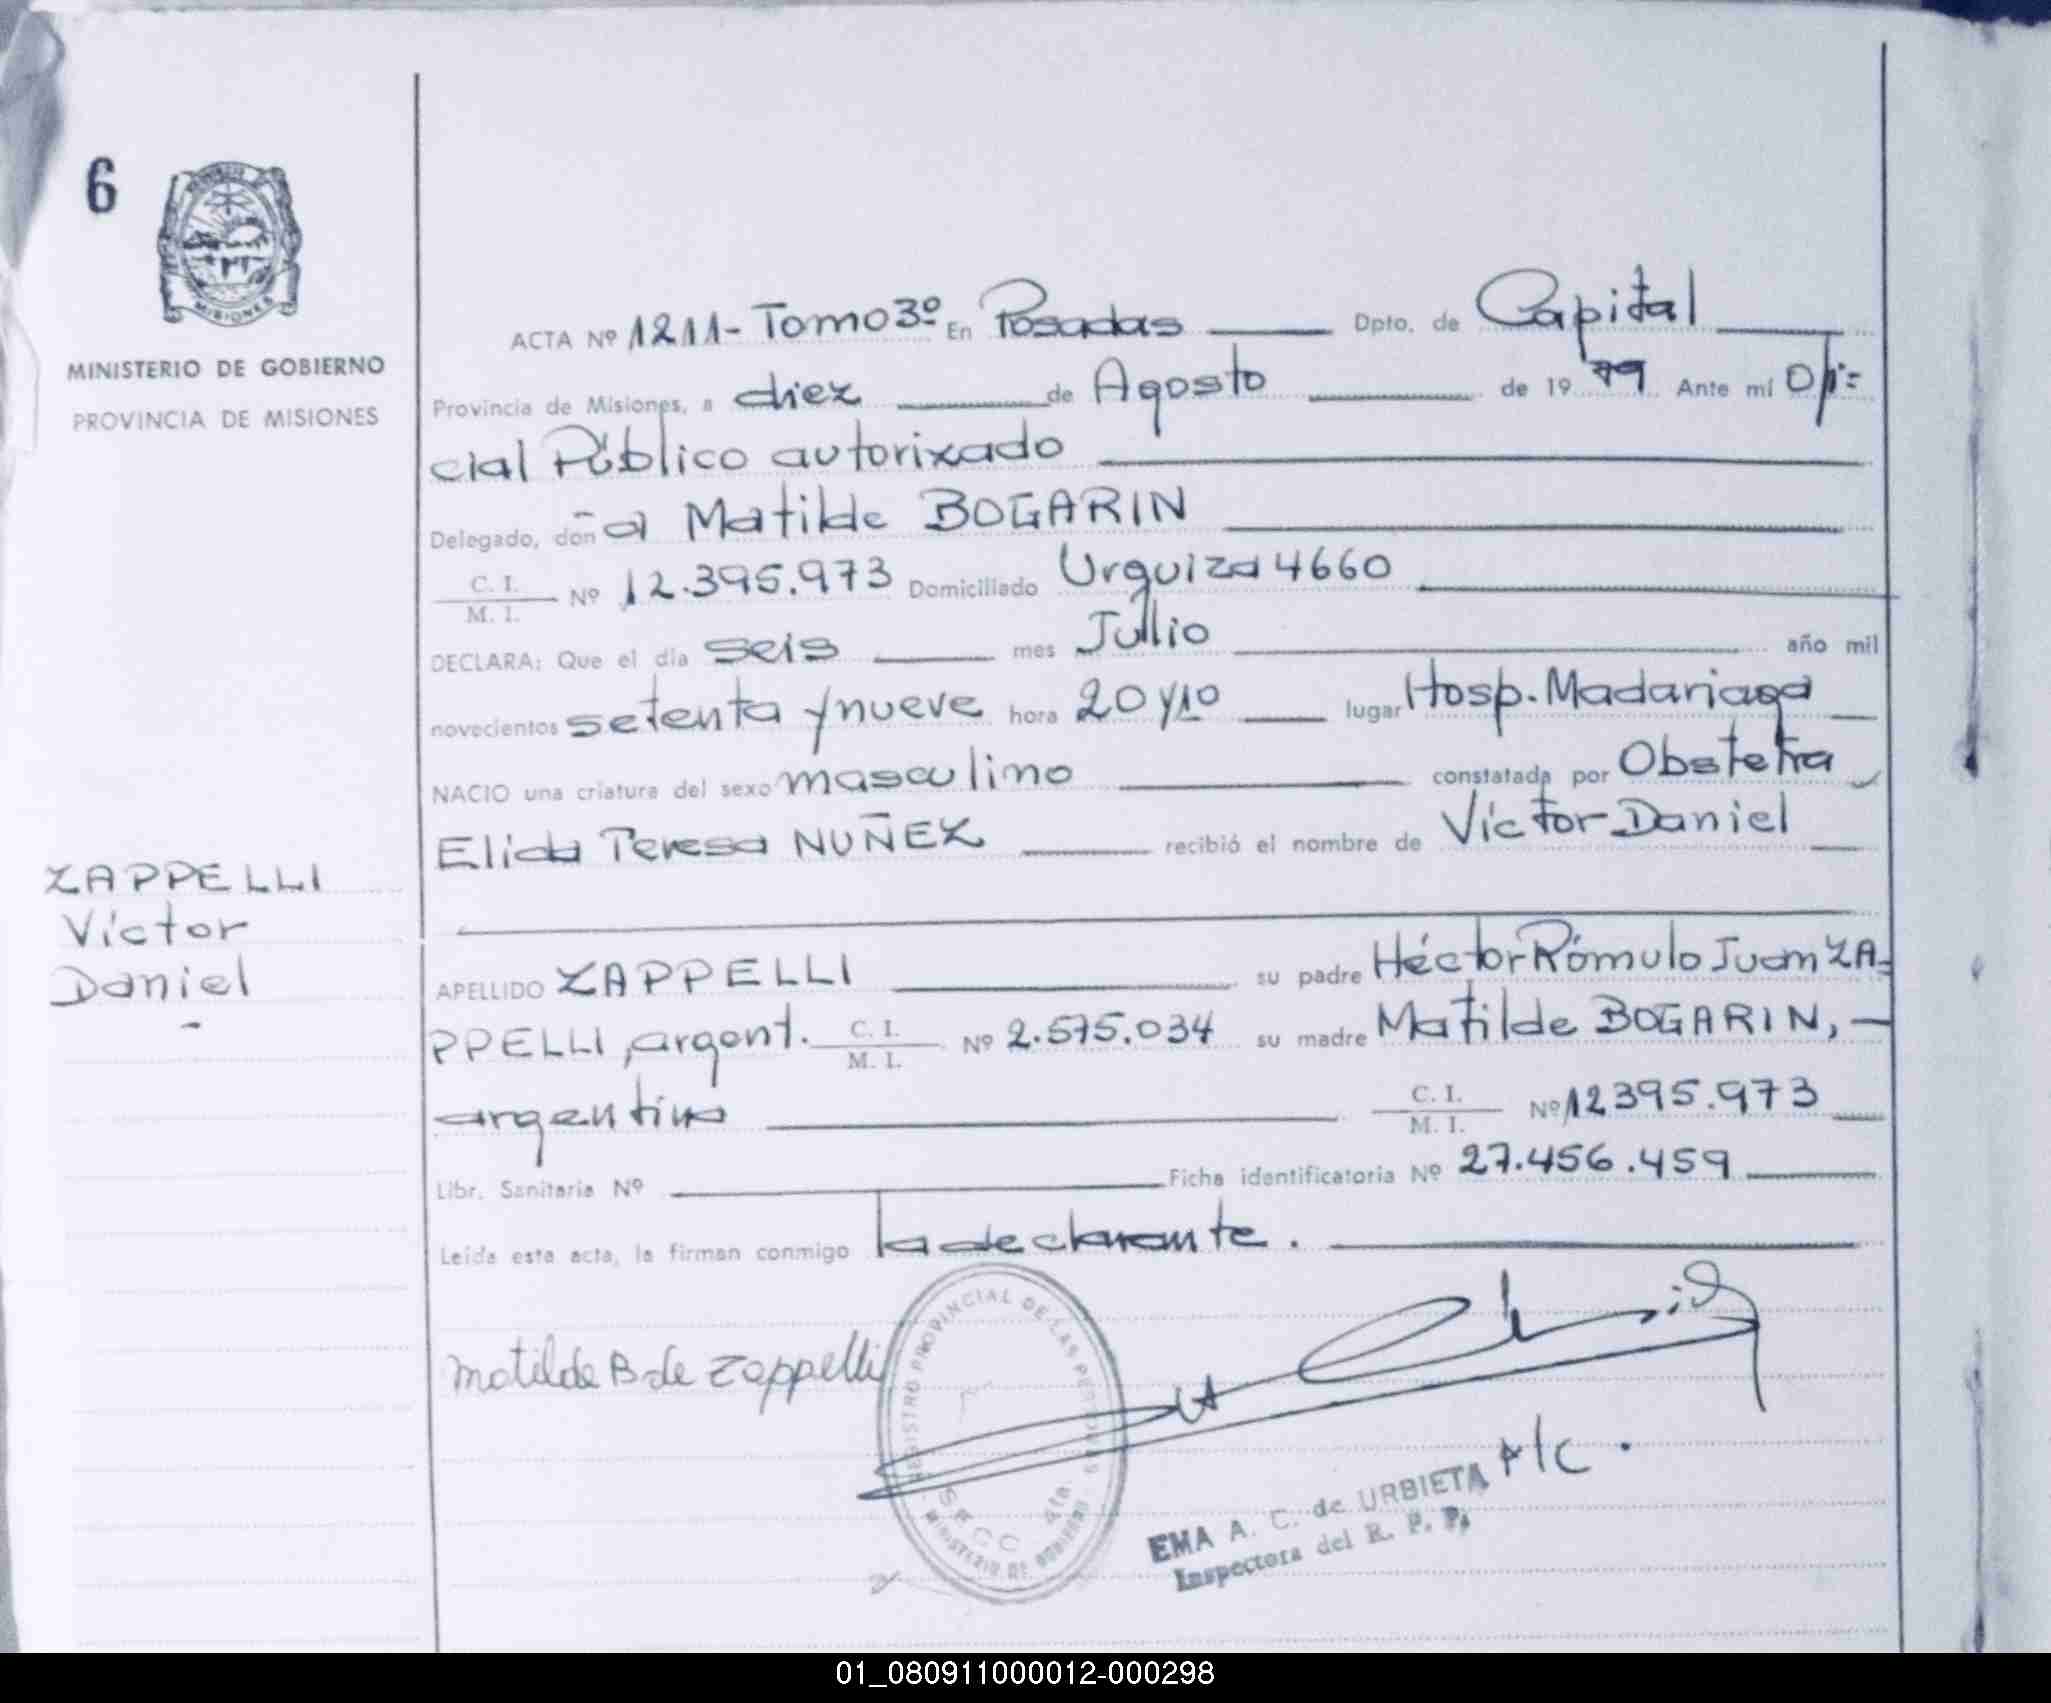 6
MISIONES
MINISTERIO DE GOBIERNO
PROVINCIA DE MISIONES
ACTA Nº 1211- Tomo 3º En Posadas Dpto. de Capital
Provincia de Misiones, a diez de Agosto de 19 79 Ante mí Ofi=
cial Público autorizado
Delegado, doña Matilde BOGARIN
C. I.
M. I. Nº 12.395.973 Domiciliado Urquiza 4660
DECLARA: Que el día seis mes Jullio año mil
novecientos setenta y nueve hora 20 y 10 lugar Hosp. Madariaga
NACIO una criatura del sexo masculino constatada por Obstetra
Elida Teresa NUÑEZ recibió el nombre de Víctor Daniel
ZAPPELLI
Víctor
Daniel
APELLIDO ZAPPELLI su padre Héctor Rómulo Juan ZA=
PPELLI, argent. C. I. M. I. Nº 2.575.034 su madre Matilde BOGARIN,
argentina C. I. M. I. Nº 12395.973
Libr. Sanitaria Nº Ficha identificatoria Nº 27.456.459
Leída esta acta, la firman conmigo la declarante.
Matilde B de Zappelli
REGISTRO PROVINCIAL DE LAS PERSONAS
SECC 4ta.
MINISTERIO DE GOBIERNO
A/C.
EMA A. C. de URBIETA
Inspectora del R. P. P.
01_080911000012-000298